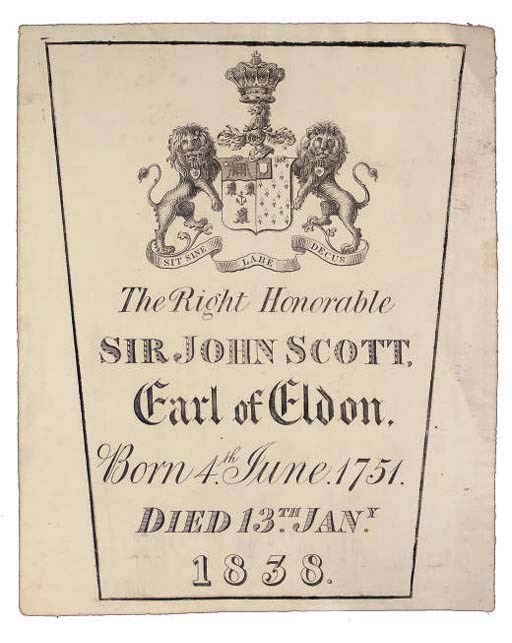 SIT SINE LABE DECUS
The Right Honorable
SIR JOHN SCOTT,
Earl of Eldon.
Born 4.th June. 1751.
DIED 13.TH JAN.Y
1838.